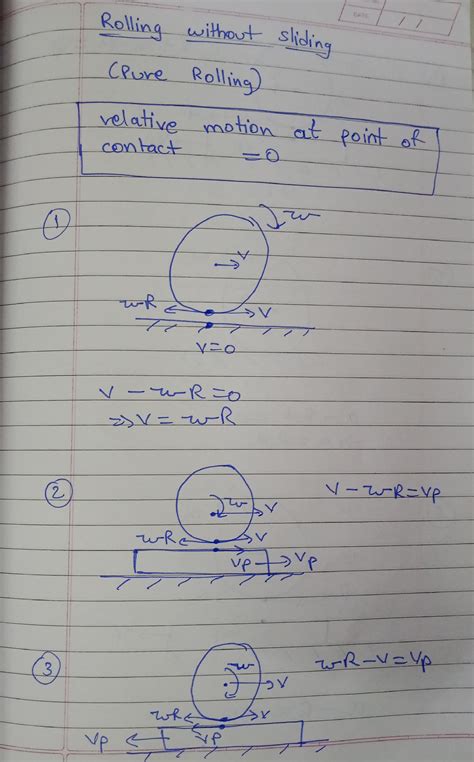 DATE
Rolling without sliding
(Pure Rolling)
relative motion at point of
contact = 0
①
w
V
wR V
V=0
V - wR=0
=> V = wR
②
w V
V - wR = Vp
wR V
Vp Vp
③
w V
wR - V = Vp
wR V
Vp Vp